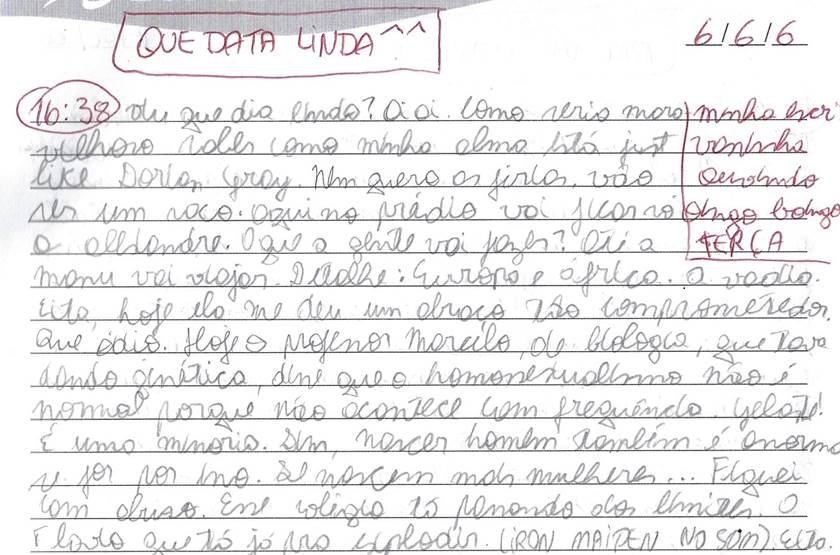 QUE DATA LINDA ^^
6/6/6
16:38 Viu que dia lindo? Ai ai. Como seria mara
vilhoso saber como minha alma está just
like Dorian Gray. Nem quero as férias, vão
ser um saco. Aqui no prédio vai ficar só
o Alexandre. O que a gente vai fazer? Até a
manu vai viajar. Detalhe: Europa e África. A vadia.
Eita, hoje ela me deu um abraço tão comprometedor.
Que ódio. Hoje o professor Marcelo, de biologia, que tava
dando genética, disse que o homossexualismo não é
normal porque não acontece com frequência.
É uma minoria. Sim, nascer homem também é anorma
se for por isso. Se nascem mais mulheres... Fiquei
com abuso. Esse colégio tá passando dos limites. O
Flato que tá já pra explodir. (IRON MAIDEN NO SOM) Eita
minha escri
vaninha
ouvindo
TERÇA